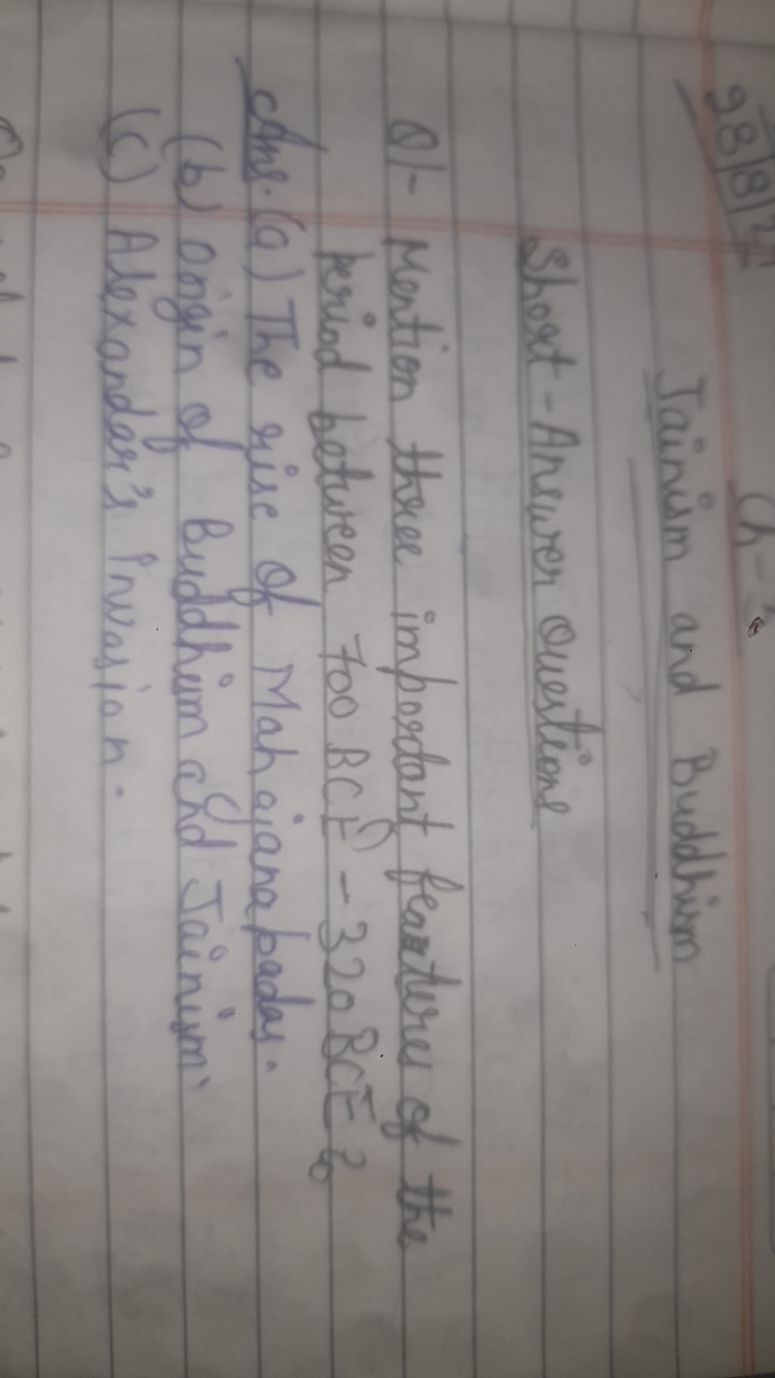 Ch-3
Jainism and Buddhism
Short-Answer Questions
Q1- Mention three important features of the
period between 700 BCE - 320 BCE?
Ans. (a) The rise of Mahajanapadas.
(b) Origin of Buddhism and Jainism.
(c) Alexandar's Invasion.